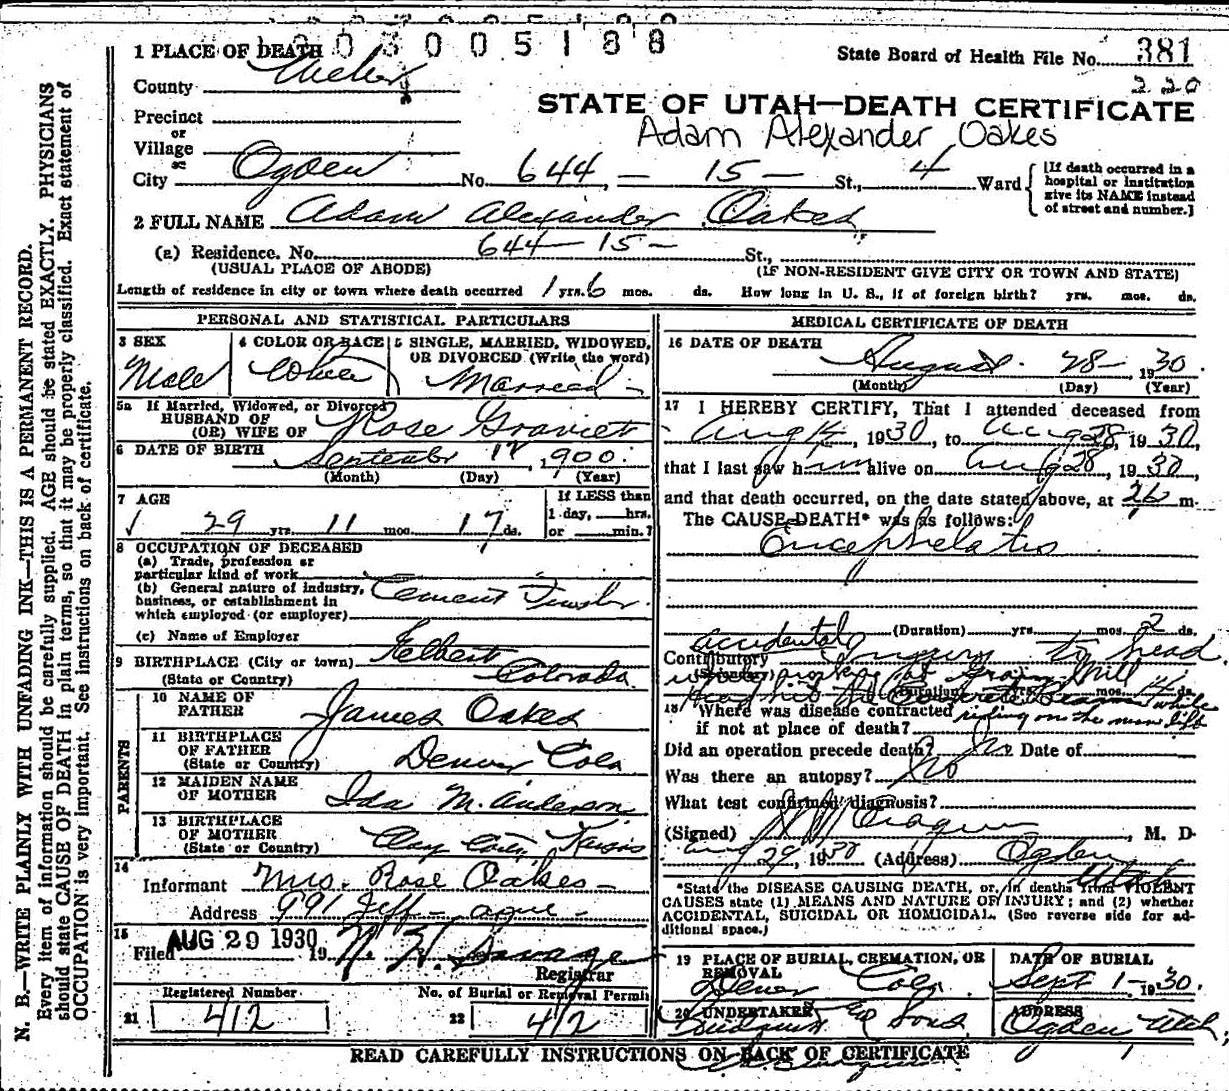 1003005188
State Board of Health File No. 381
220
STATE OF UTAH—DEATH CERTIFICATE
Adam Alexander Oakes
1 PLACE OF DEATH
County Weber
Precinct
or
Village
or
City Ogden No. 644, — 15 — St., 4 Ward
[If death occurred in a
hospital or institution
give its NAME instead
of street and number.]
2 FULL NAME Adam Alexander Oakes
(a) Residence. No. 644 — 15 — St.,
(USUAL PLACE OF ABODE) (IF NON-RESIDENT GIVE CITY OR TOWN AND STATE)
Length of residence in city or town where death occurred 1 yrs. 6 mos. ds. How long in U. S., if of foreign birth? yrs. mos. ds.
PERSONAL AND STATISTICAL PARTICULARS
3 SEX
Male
4 COLOR OR RACE
White
5 SINGLE, MARRIED, WIDOWED,
OR DIVORCED (Write the word)
Married
5a If Married, Widowed, or Divorced
HUSBAND OF
(OR) WIFE OF Rose
6 DATE OF BIRTH September 1900
(Month) (Day) (Year)
7 AGE
29 yrs. 11 mos. 17 ds.
If LESS than
1 day, hrs.
or min.?
8 OCCUPATION OF DECEASED
(a) Trade, profession or
particular kind of work
(b) General nature of industry,
business, or establishment in
which employed (or employer)
Cement
(c) Name of Employer
9 BIRTHPLACE (City or town)
(State or Country) Colorado
PARENTS
10 NAME OF
FATHER James Oakes
11 BIRTHPLACE
OF FATHER
(State or Country) Denver Colo
12 MAIDEN NAME
OF MOTHER Ida M. Anderson
13 BIRTHPLACE
OF MOTHER
(State or Country) Clay
14
Informant Mrs. Rose Oakes
Address 991 Jeff
15
Filed AUG 29 1930 19 Savage
Registrar
Registered Number
21 412
No. of Burial or Removal Permit
22 412
MEDICAL CERTIFICATE OF DEATH
16 DATE OF DEATH
August 28 1930
(Month) (Day) (Year)
17 I HEREBY CERTIFY, That I attended deceased from
Aug 14, 1930, to Aug 28, 1930,
that I last saw him alive on Aug 28, 1930
and that death occurred, on the date stated above, at m.
The CAUSE DEATH* was as follows:
Encephelatis
(Duration) yrs. mos. 2 ds.
Contributory accidental injury to head
(Secondary) while working at Grain Mill
(Duration) yrs. mos. 14 ds.
while
18 Where was disease contracted riding on the man lift
if not at place of death?
Did an operation precede death? No Date of
Was there an autopsy? No
What test confirmed diagnosis?
(Signed) , M. D
Aug 29, 1930 (Address) Ogden
Utah
*State the DISEASE CAUSING DEATH, or, in deaths from VIOLENT
CAUSES state (1) MEANS AND NATURE OF INJURY; and (2) whether
ACCIDENTAL, SUICIDAL OR HOMICIDAL. (See reverse side for ad-
ditional space.)
19 PLACE OF BURIAL, CREMATION, OR
REMOVAL
Denver Colo
DATE OF BURIAL
Sept 1 — 1930.
20 UNDERTAKER
& Sons
ADDRESS
Ogden Utah
READ CAREFULLY INSTRUCTIONS ON BACK OF CERTIFICATE
N. B.—WRITE PLAINLY WITH UNFADING INK—THIS IS A PERMANENT RECORD.
Every item of information should be carefully supplied. AGE should be stated EXACTLY. PHYSICIANS
should state CAUSE OF DEATH in plain terms, so that it may be properly classified. Exact statement of
OCCUPATION is very important. See instructions on back of certificate.